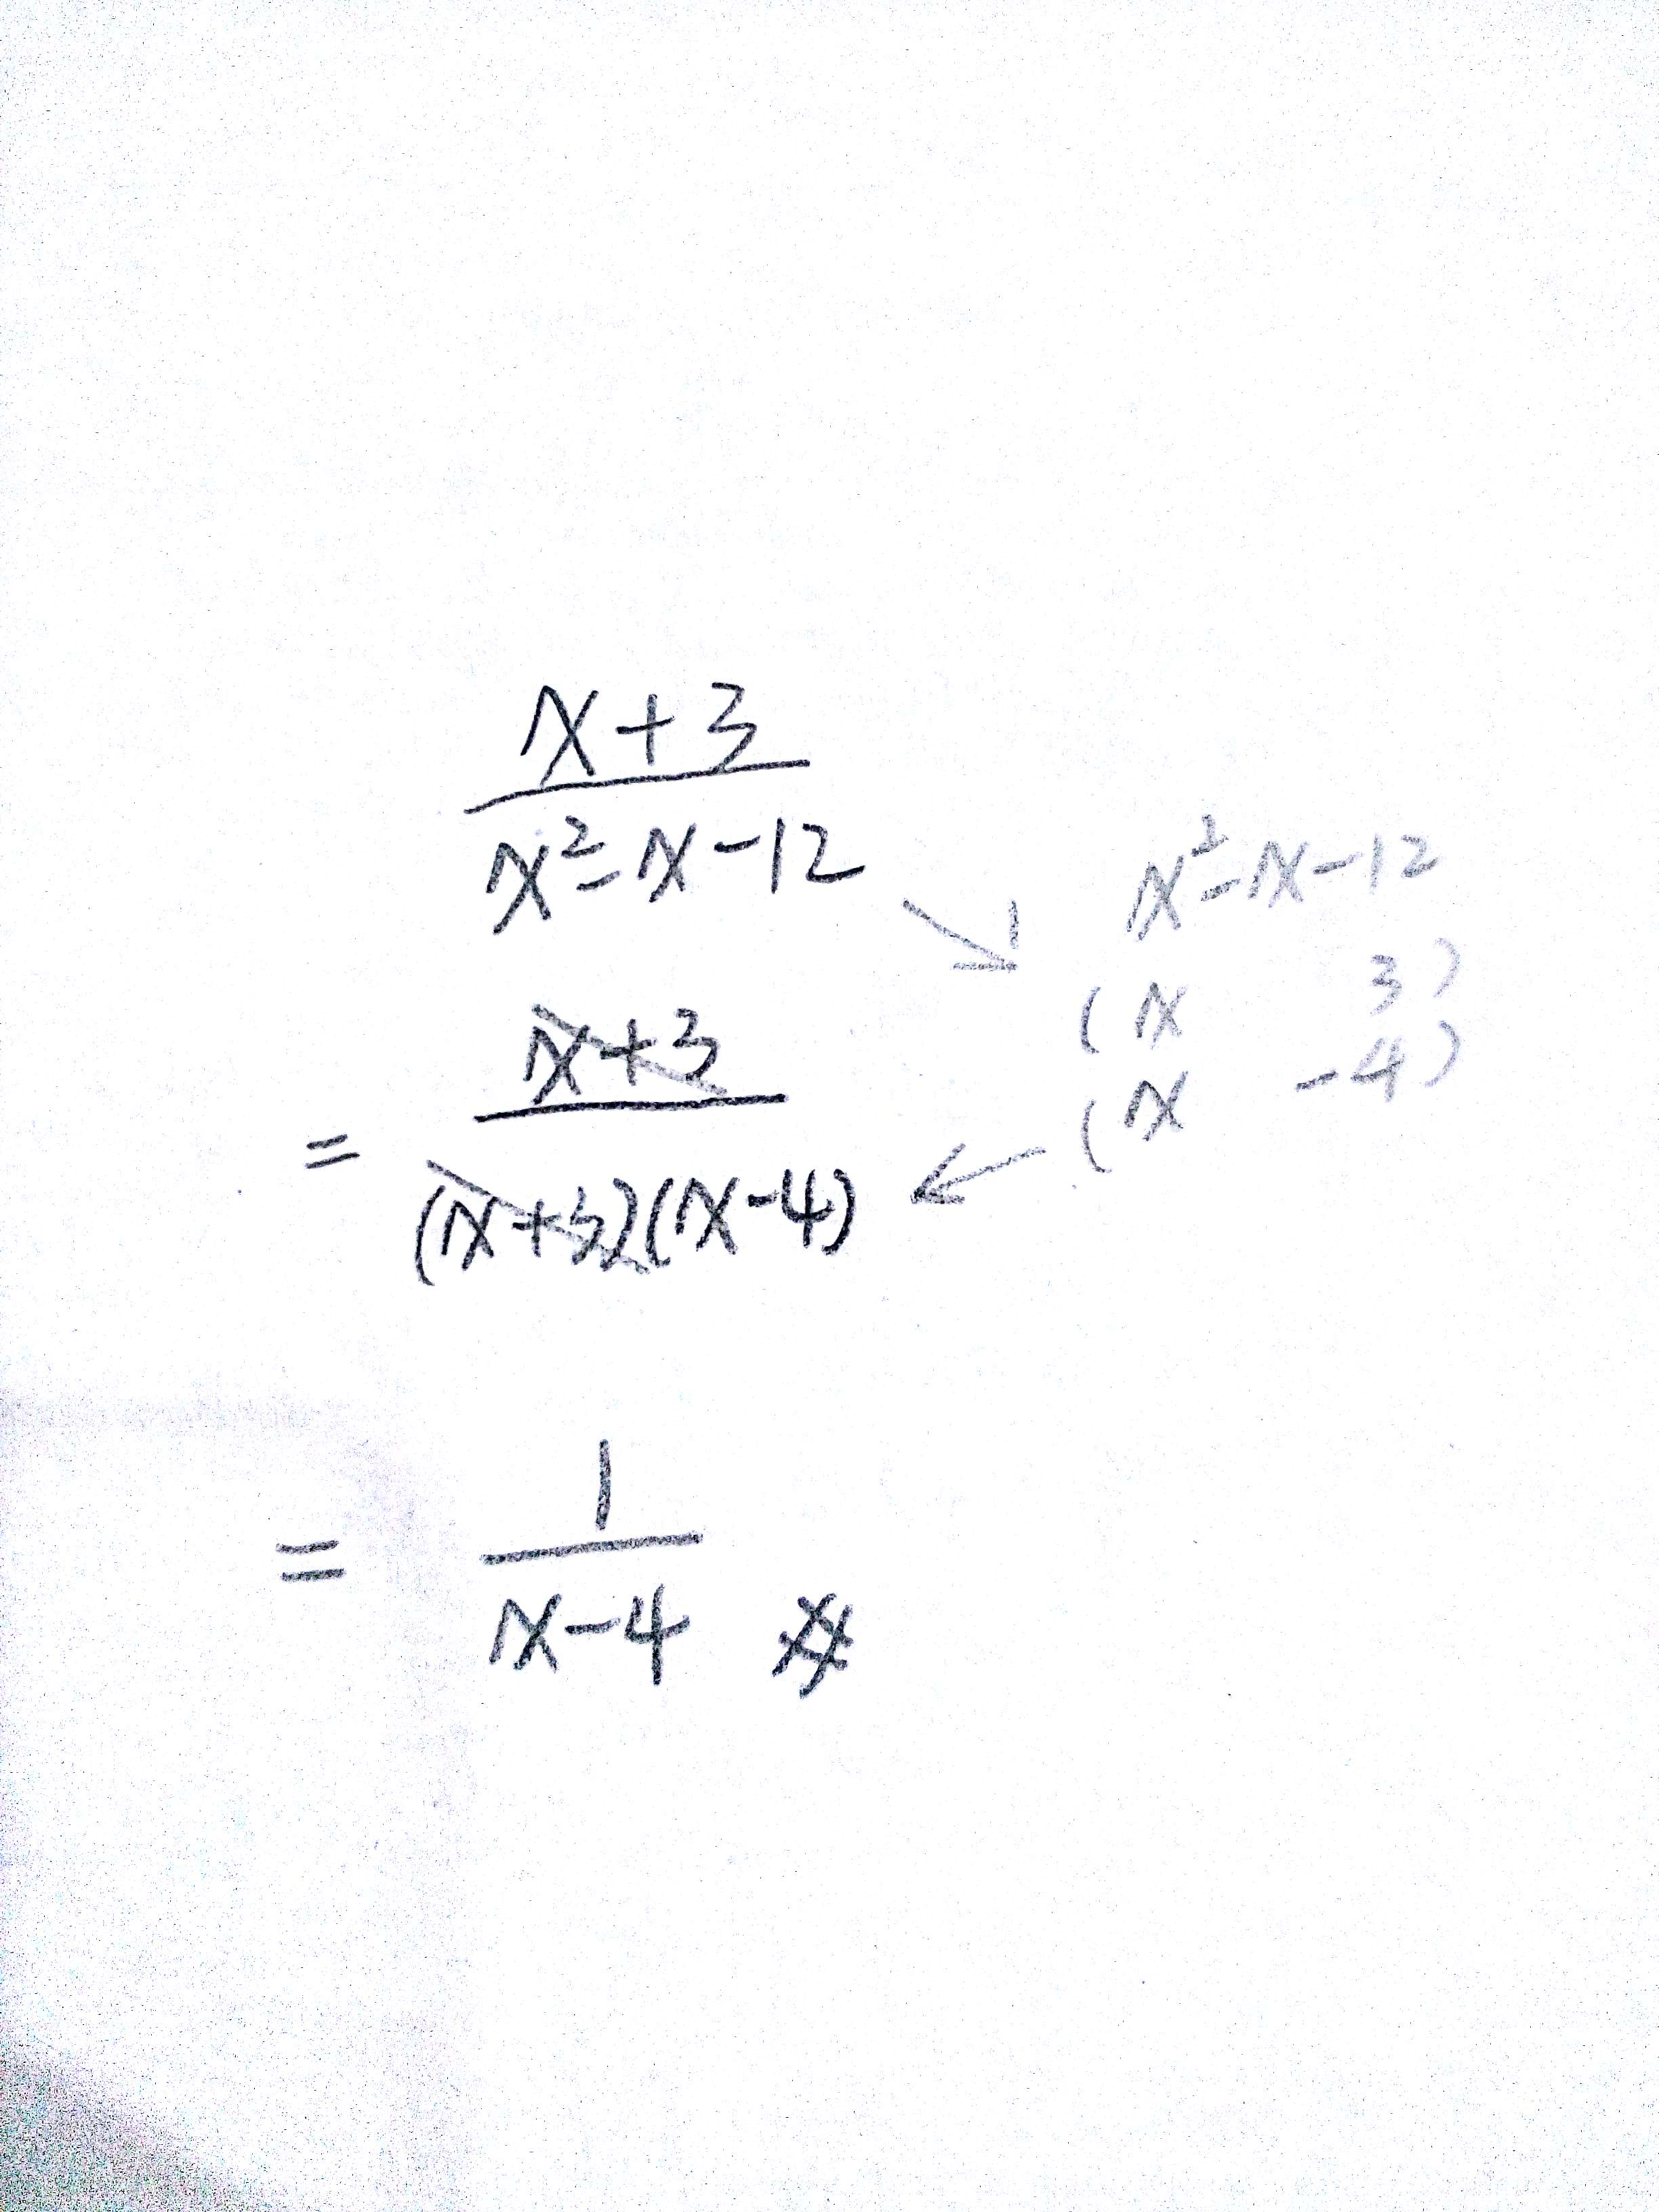 x+3
x²-x-12
x²-x-12
(x 3)
(x -4)
= x+3
(x+3)(x-4)
= 1
x-4 #